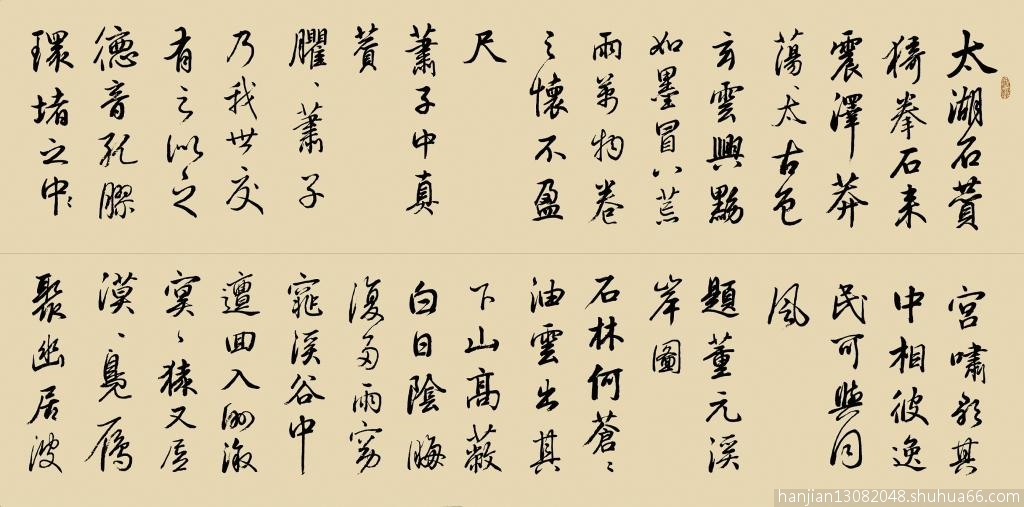 太湖石贊
猗拳石来
震澤莽
蕩、太古色
玄雲興黝
如墨冒八荒
雨萬物卷
之懷不盈
尺
蕭子中真
贊
臞、蕭子
乃我世交
有之似之
德音孔膠
環堵之中、
宮嘯歌其
中相彼逸
民可與同
風
題董元溪
岸圖
石林何蒼、
油雲出其
下山高蔽
白日陰晦
復多雨窈
窕溪谷中
邅回入洲溆
冥、猿又居
漠、鳧雁
聚幽居彼
hanjian13082048.shuhua66.com